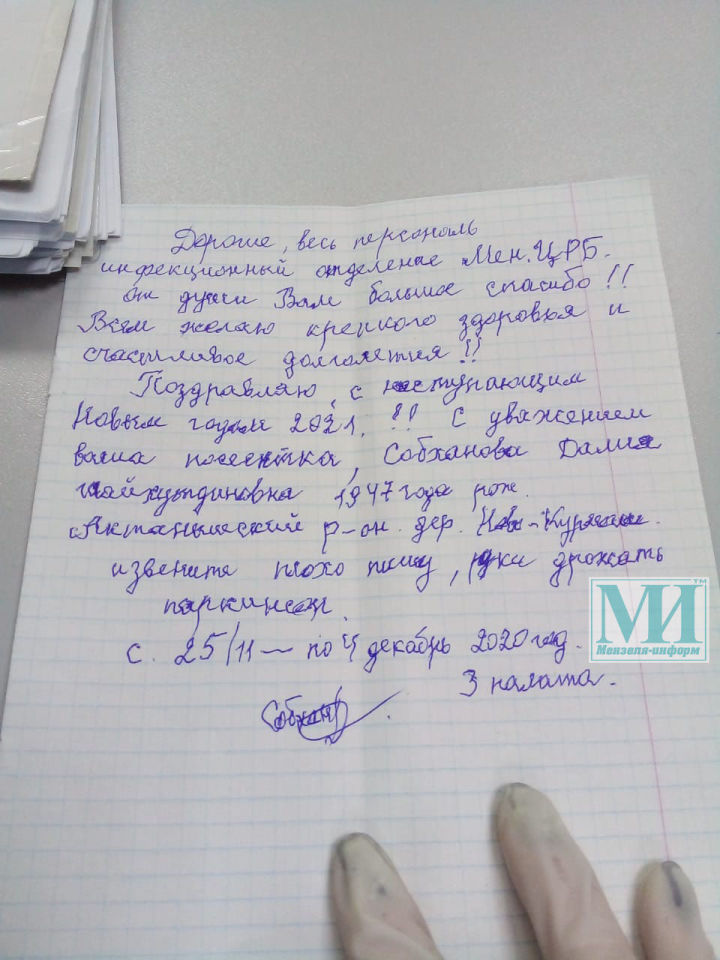 Дорогие, весь персональ
инфекционный отделение Мен. ЦРБ.
от души Вам большое спасибо!!
Всем желаю крепкого здоровья и
счастливое долголетия!!
Поздравляю, с наступающим
Новым годом 2021.!! С уважением
ваша пациентка, Собханова Далия
Шайхутдиновна 1947 года рож.
Актанышский р-он. дер.
извените плохо пишу, руки дрожать
паркинсон.
с. 25/11 — по 4 декабрь 2020 год.
3 палата.
МИ™
Мензеля-информ